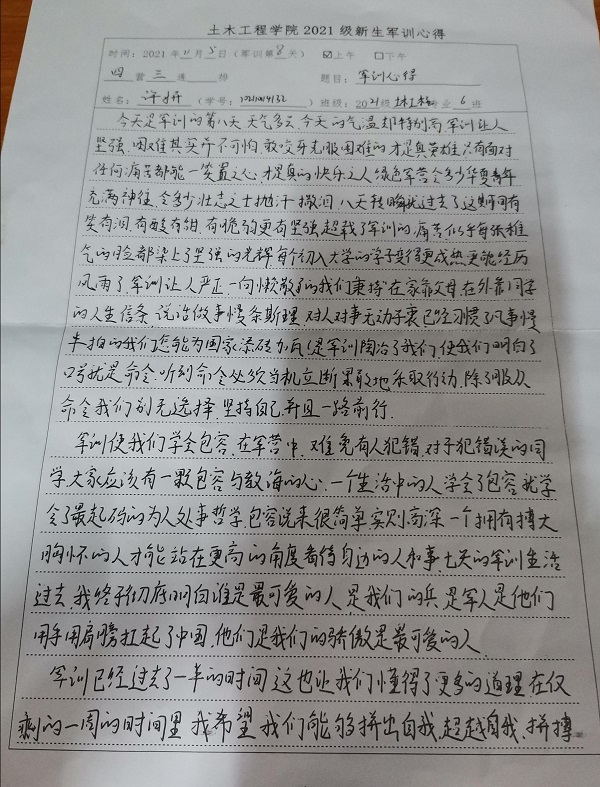 土木工程学院 2021 级新生军训心得
时间：2021 年 11 月 5 日（军训第 8 天） ☑上午 □下午
四 营 三 连 排 题目：军训心得
姓名：许妍 （学号： ）班级：2021级 专业 6 班
今天是军训的第八天，天气多云，今天的气温却特别高，军训让人
坚强，困难其实并不可怕，敢咬牙克服困难的才是真英雄，只有面对
任何痛苦都能一笑置之心，才是真的快乐之人，绿色军营令多少华夏青年
充满神往，令多少壮志之士抛汗撒泪，八天转瞬就过去了，这期间有
笑有泪，有酸有甜，有脆弱更有坚强，超载了军训的痛苦，似乎每张稚
气的脸都染上了坚强的光辉，每个初入大学的学子变得更成熟更能经历
风雨了，军训让人严正，一向懒散了的我们秉持“在家靠父母，在外靠同学”
的人生信条，说话做事慢条斯理，对人对事无动于衷已经习惯了，凡事慢
半拍的我们怎能为国家添砖加瓦（是军训陶冶了我们，使我们明白了
口号就是命令，听到命令必须当机立断，果敢地采取行动，除了服从
命令我们别无选择，坚持自己，并且一路前行．
军训使我们学会包容，在军营中，难免有人犯错，对于犯错误的同
学，大家应该有一颗包容与教诲的心，一个生活中的人学会了包容，就学
会了最起码的为人处事哲学，包容说来很简单，实则高深，一个拥有博大
胸怀的人才能站在更高的角度看待身边的人和事，七天的军训生活
过去，我终于彻底明白谁是最可爱的人，是我们的兵，是军人，是他们
用手用肩膀扛起了中国，他们是我们的骄傲，是最可爱的人．
军训已经过去了一半的时间，这也让我们懂得了更多的道理，在仅
剩的一周的时间里，我希望，我们能够拼出自我，超越自我，拼搏